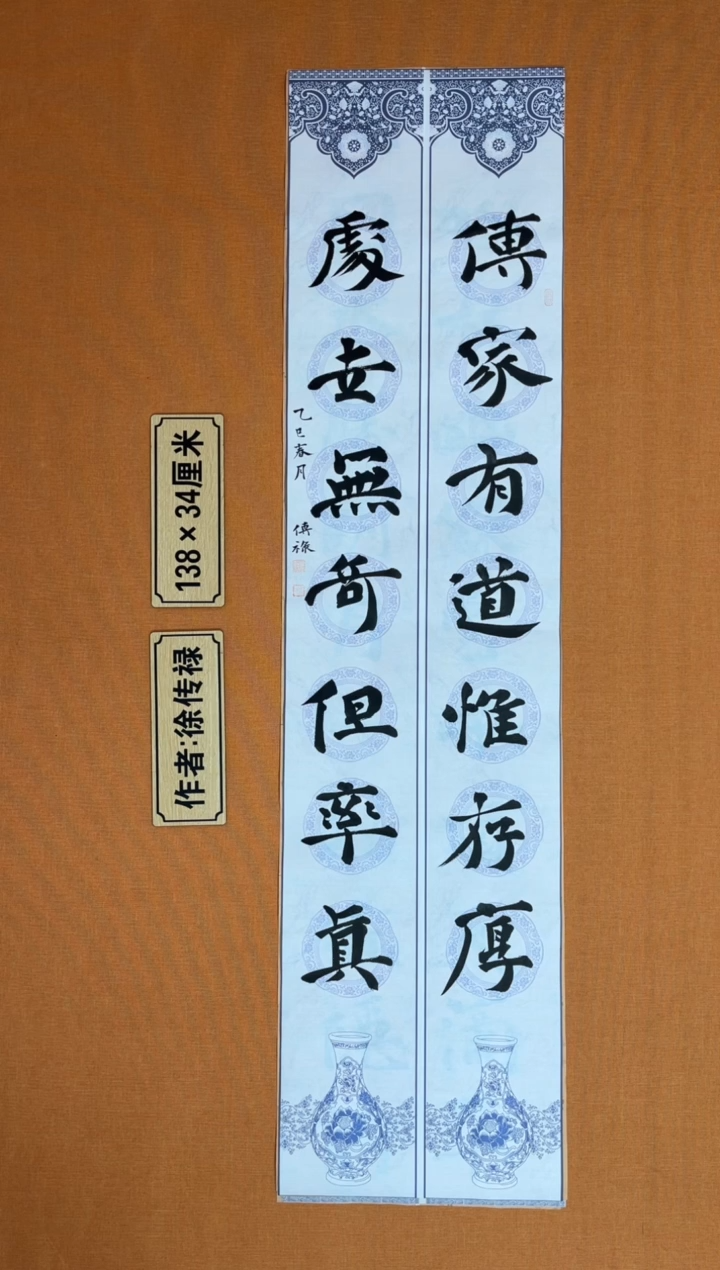 傳家有道惟存厚
處世無奇但率真
乙巳春月
傳祿
138×34厘米
作者:徐传禄